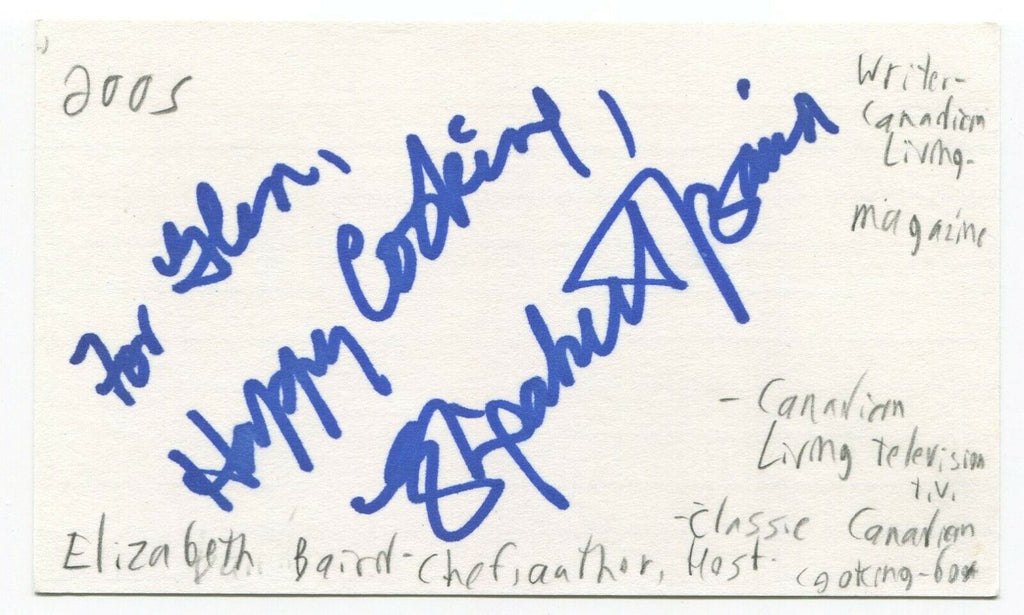 2005
Writer-
Canadian
Living-
magazine
For Glen,
Happy Cooking!
Elizabeth Baird
- Canadian
Living television
t.v.
-Classic Canadian
cooking-book
Elizabeth Baird-Chef, author, Host.